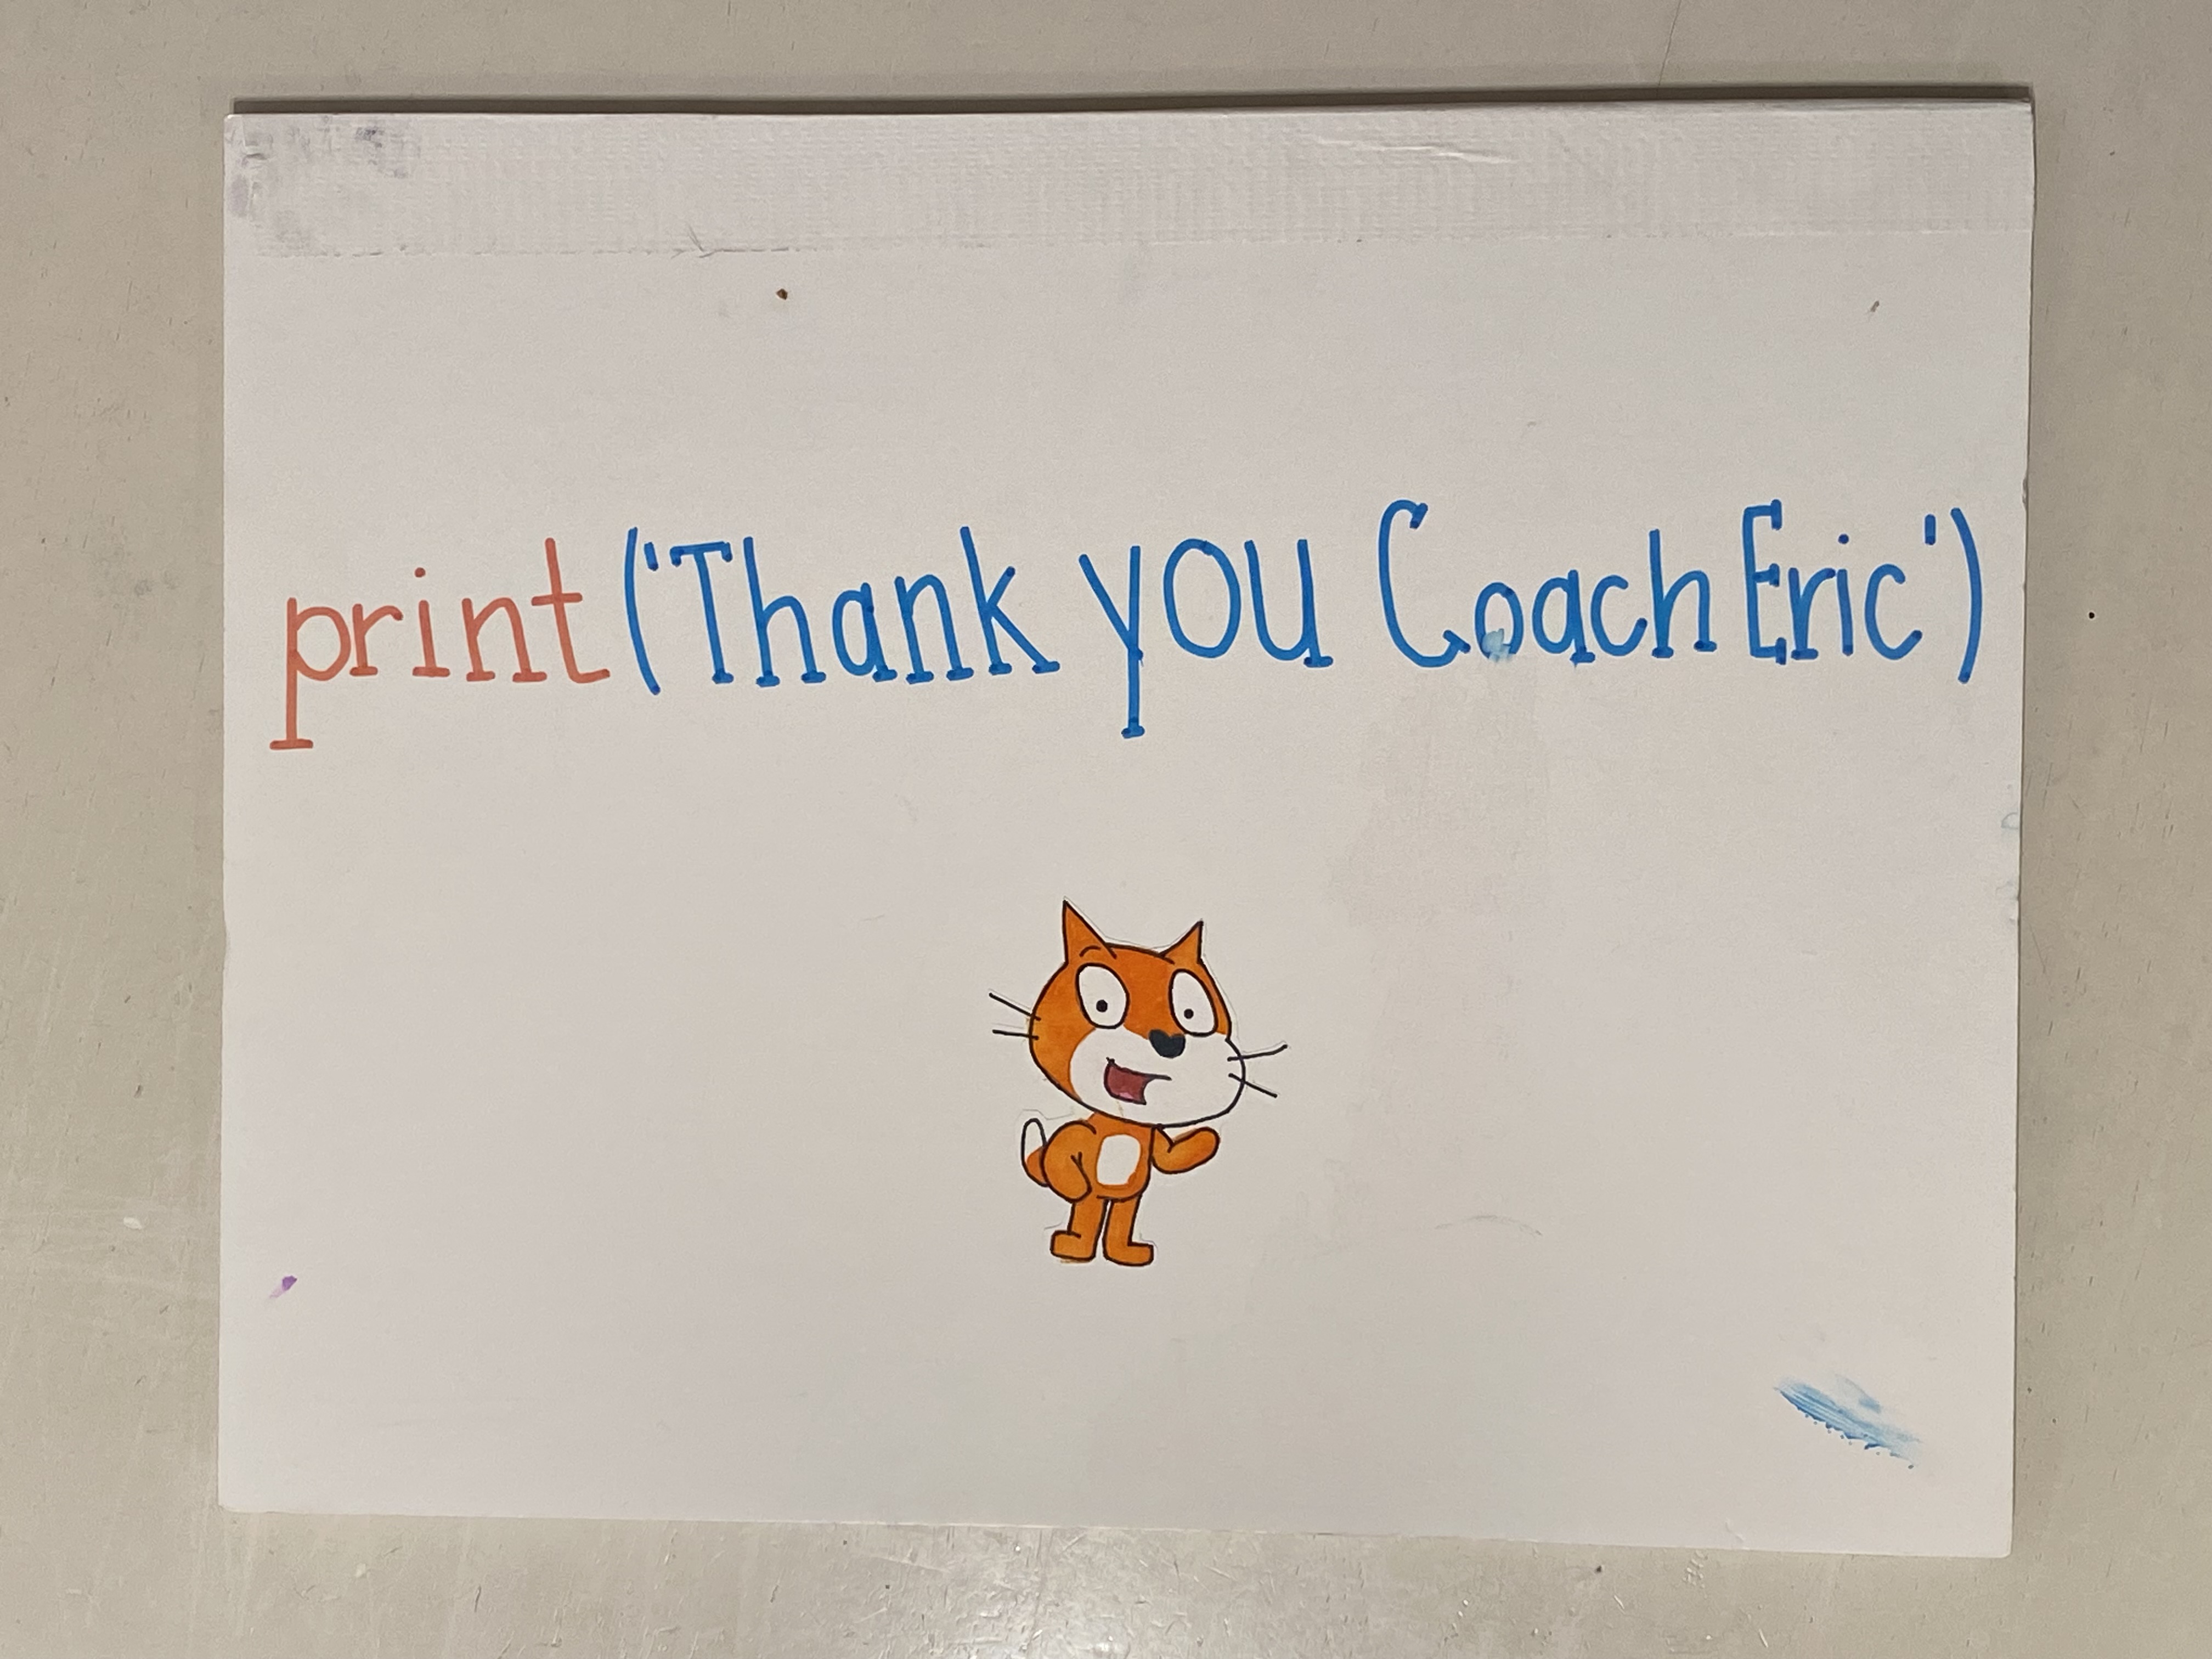 print('Thank you Coach Eric')